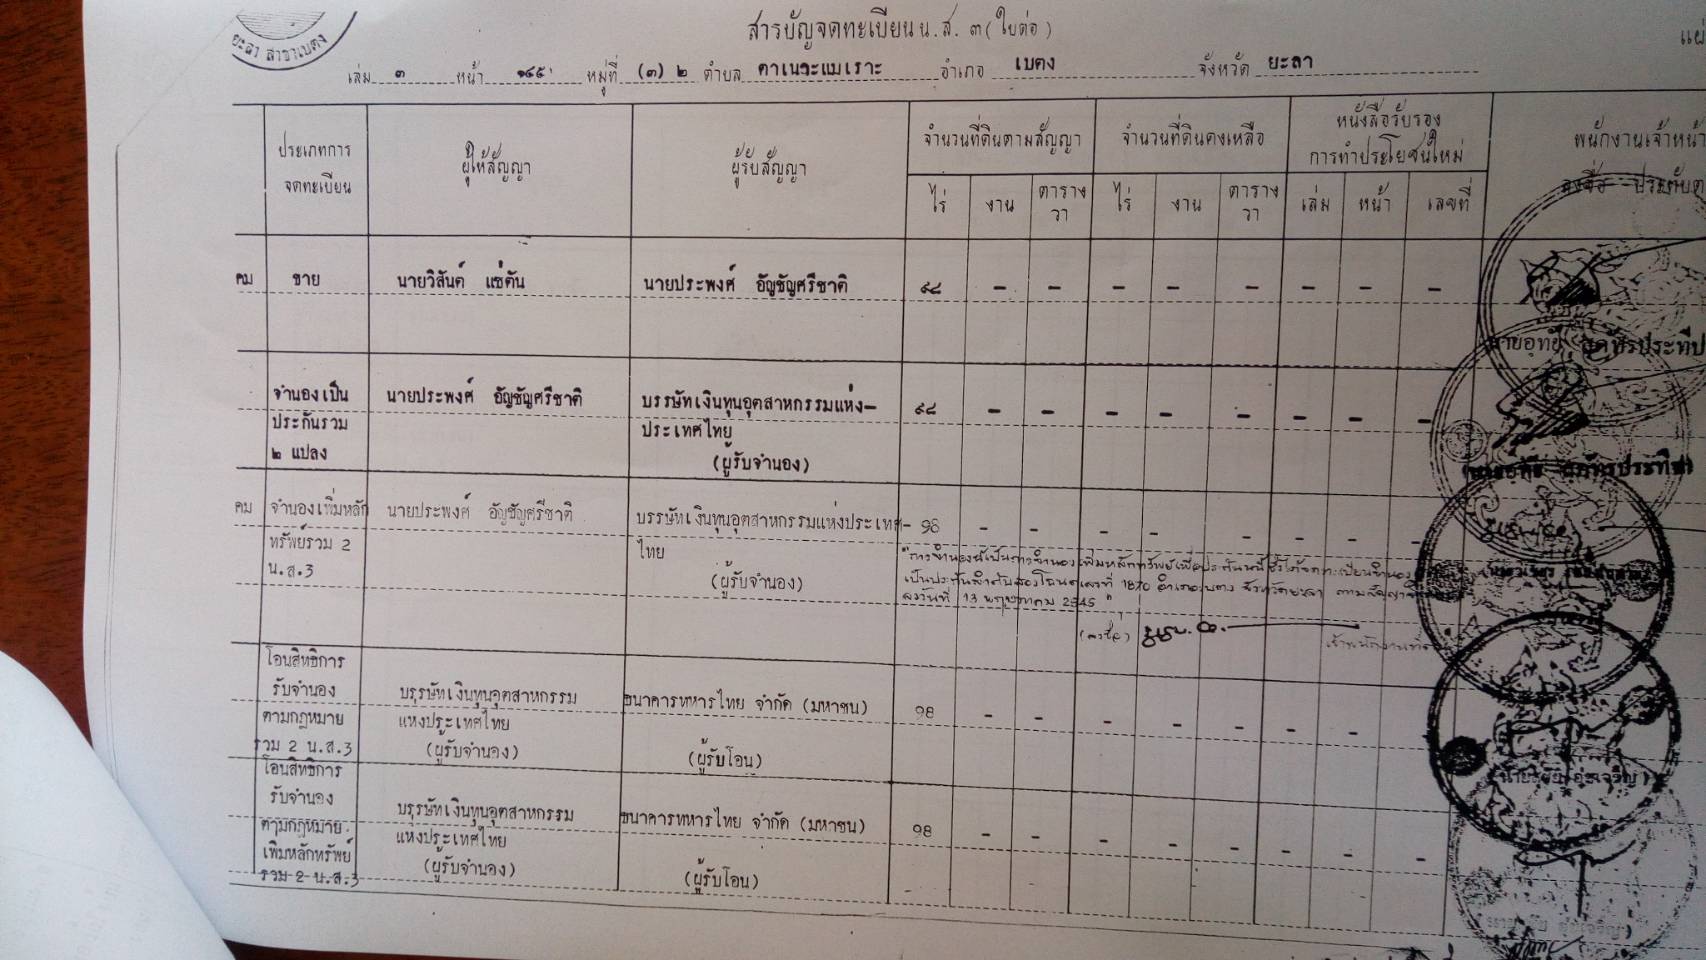 ยะลา สาขาเบตง
สารบัญจดทะเบียน น.ส. ๓ (ใบต่อ)
เล่ม ๓ หน้า ๑๔๕ หมู่ที่ (๓) ๒ ตำบล ตาเนาะแมเราะ อำเภอ เบตง จังหวัด ยะลา
ประเภทการ
จดทะเบียน
ผู้ให้สัญญา
ผู้รับสัญญา
จำนวนที่ดินตามสัญญา
จำนวนที่ดินคงเหลือ
หนังสือรับรอง
การทำประโยชน์ใหม่
พนักงานเจ้าหน้า
ลงชื่อ ประทับต
ไร่ งาน ตาราง
วา
ไร่ งาน ตาราง
วา
เล่ม หน้า เลขที่
คม ขาย นายวิสันต์ แซ่ตัน นายประพงศ์ อัญชัญศรีชาติ ๙๘ - - - - - - - -
จำนองเป็น นายประพงศ์ อัญชัญศรีชาติ บรรษัทเงินทุนอุตสาหกรรมแห่ง- ๙๘ - - - - - - - -
ประกันรวม ประเทศไทย
๒ แปลง (ผู้รับจำนอง)
คม จำนองเพิ่มหลัก นายประพงศ์ อัญชัญศรีชาติ บรรษัทเงินทุนอุตสาหกรรมแห่งประเทศ- 98 - - - - - - - -
ทรัพย์รวม 2 ไทย
น.ส.3 (ผู้รับจำนอง)
"การจำนองนี้เป็นการจำนองเพิ่มหลักทรัพย์เพื่อประกันหนี้ซึ่งได้จดทะเบียนจำนอง
เป็นประกันลำดับสองโฉนดเลขที่ 1870 อำเภอเบตง จังหวัดยะลา ตามสัญญา
ลงวันที่ 13 พฤษภาคม 2545 "
(ลงชื่อ)
เจ้าพนักงานที่ดิน
โอนสิทธิการ
รับจำนอง บรรษัทเงินทุนอุตสาหกรรม ธนาคารทหารไทย จำกัด (มหาชน) 98 - - - - - - -
ตามกฎหมาย แห่งประเทศไทย
รวม 2 น.ส.3 (ผู้รับจำนอง) (ผู้รับโอน)
โอนสิทธิการ
รับจำนอง บรรษัทเงินทุนอุตสาหกรรม ธนาคารทหารไทย จำกัด (มหาชน) 98 - - - - - - - -
ตามกฎหมาย แห่งประเทศไทย
เพิ่มหลักทรัพย์ (ผู้รับจำนอง) (ผู้รับโอน)
รวม 2 น.ส.3